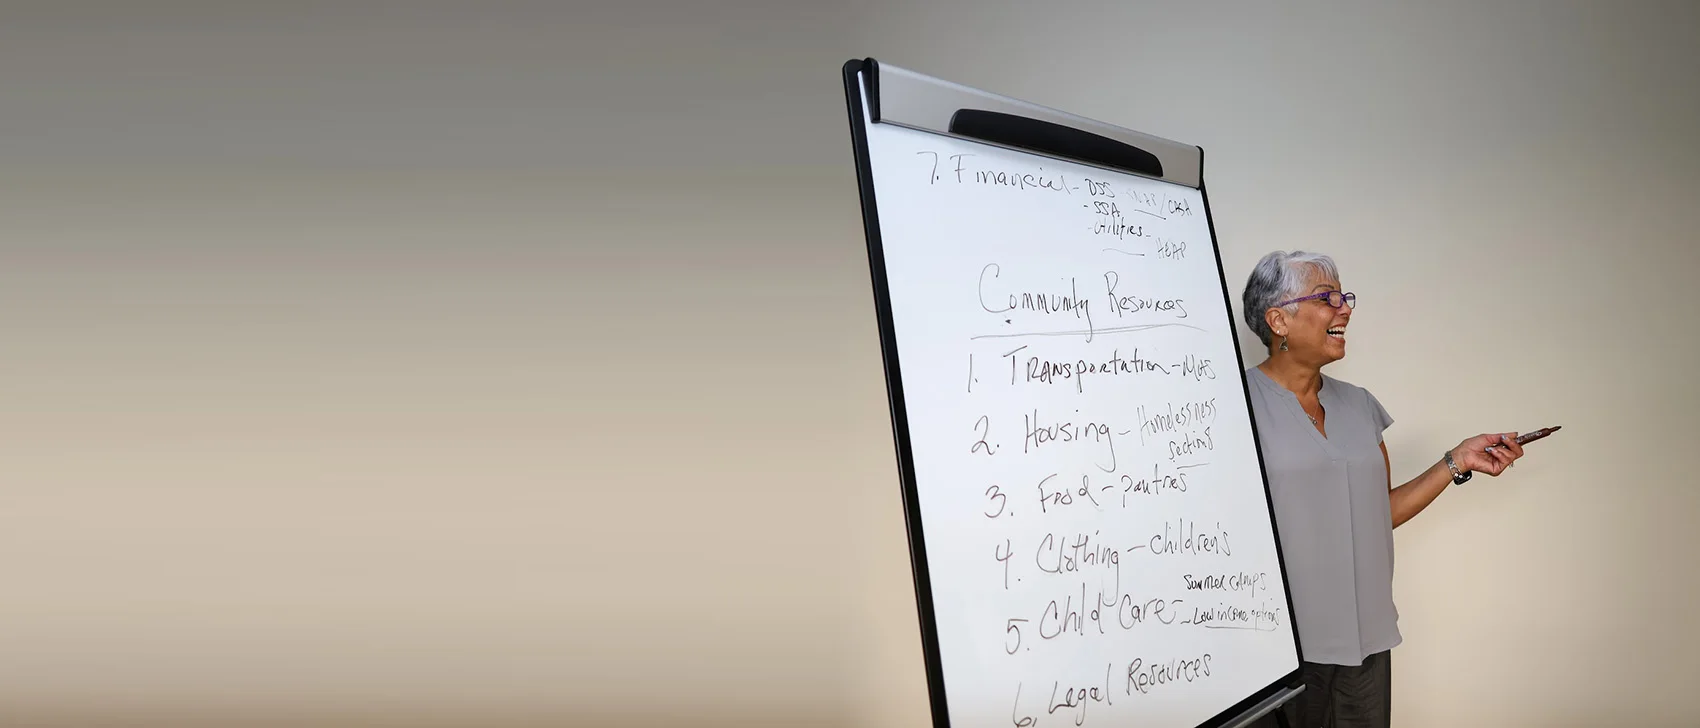 7. Financial - DSS
- SSA
- Utilities -
HEAP
Community Resources
1. Transportation - MAS
2. Housing - Homelessness
Section 8
3. Food - pantries
4. Clothing - children's
Summer camps
5. Child Care - Low income options
6. Legal Resources